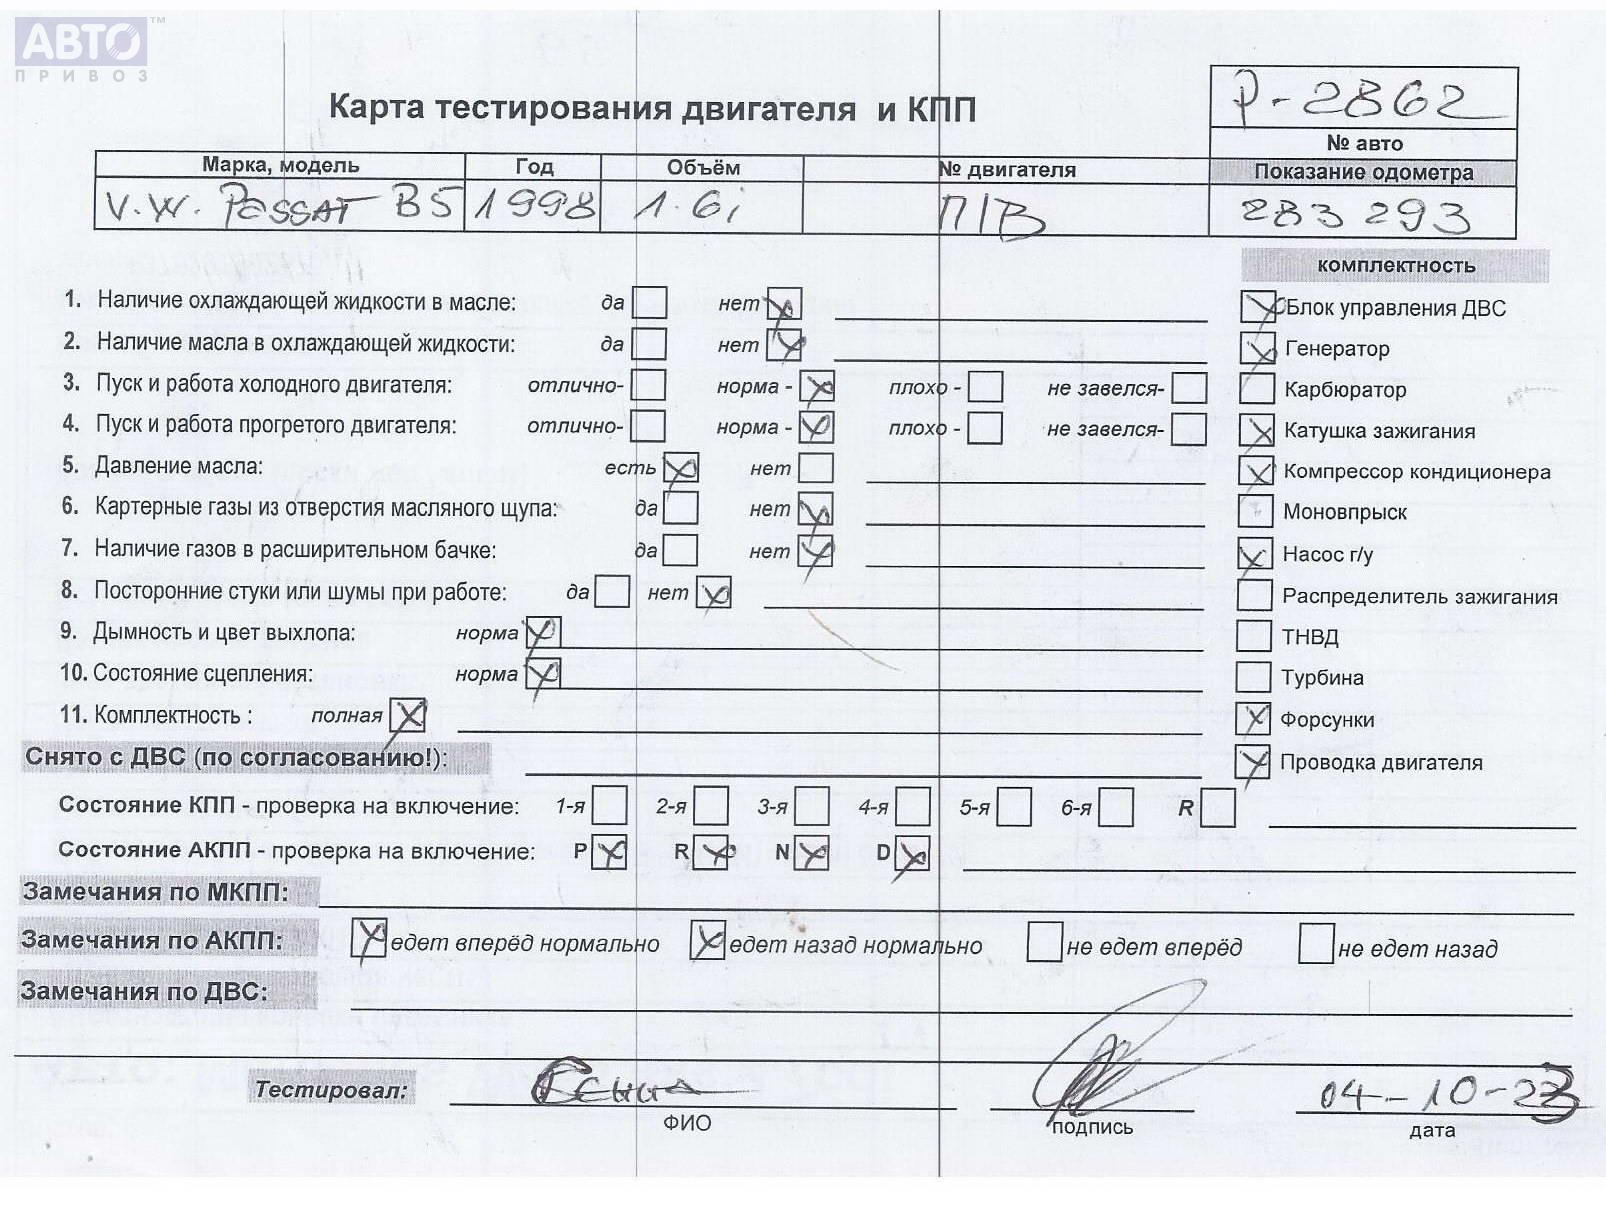 АВТО™
ПРИВОЗ
Р-2862
Карта тестирования двигателя и КПП
№ авто
Марка, модель Год Объём № двигателя Показание одометра
V.W. PASSAT B5 1998 1.6i П/В 283 293
комплектность
1. Наличие охлаждающей жидкости в масле: да нет
Блок управления ДВС
2. Наличие масла в охлаждающей жидкости: да нет
Генератор
3. Пуск и работа холодного двигателя: отлично- норма - плохо - не завелся-
Карбюратор
4. Пуск и работа прогретого двигателя: отлично- норма - плохо - не завелся-
Катушка зажигания
5. Давление масла: есть нет
Компрессор кондиционера
6. Картерные газы из отверстия масляного щупа: да нет
Моновпрыск
7. Наличие газов в расширительном бачке: да нет
Насос г/у
8. Посторонние стуки или шумы при работе: да нет
Распределитель зажигания
9. Дымность и цвет выхлопа: норма
ТНВД
10. Состояние сцепления: норма
Турбина
11. Комплектность : полная
Форсунки
Снято с ДВС (по согласованию!):
Проводка двигателя
Состояние КПП - проверка на включение: 1-я 2-я 3-я 4-я 5-я 6-я R
Состояние АКПП - проверка на включение: P R N D
Замечания по МКПП:
Замечания по АКПП: едет вперёд нормально едет назад нормально не едет вперёд не едет назад
Замечания по ДВС:
Тестировал: Генна 04-10-23
ФИО подпись дата